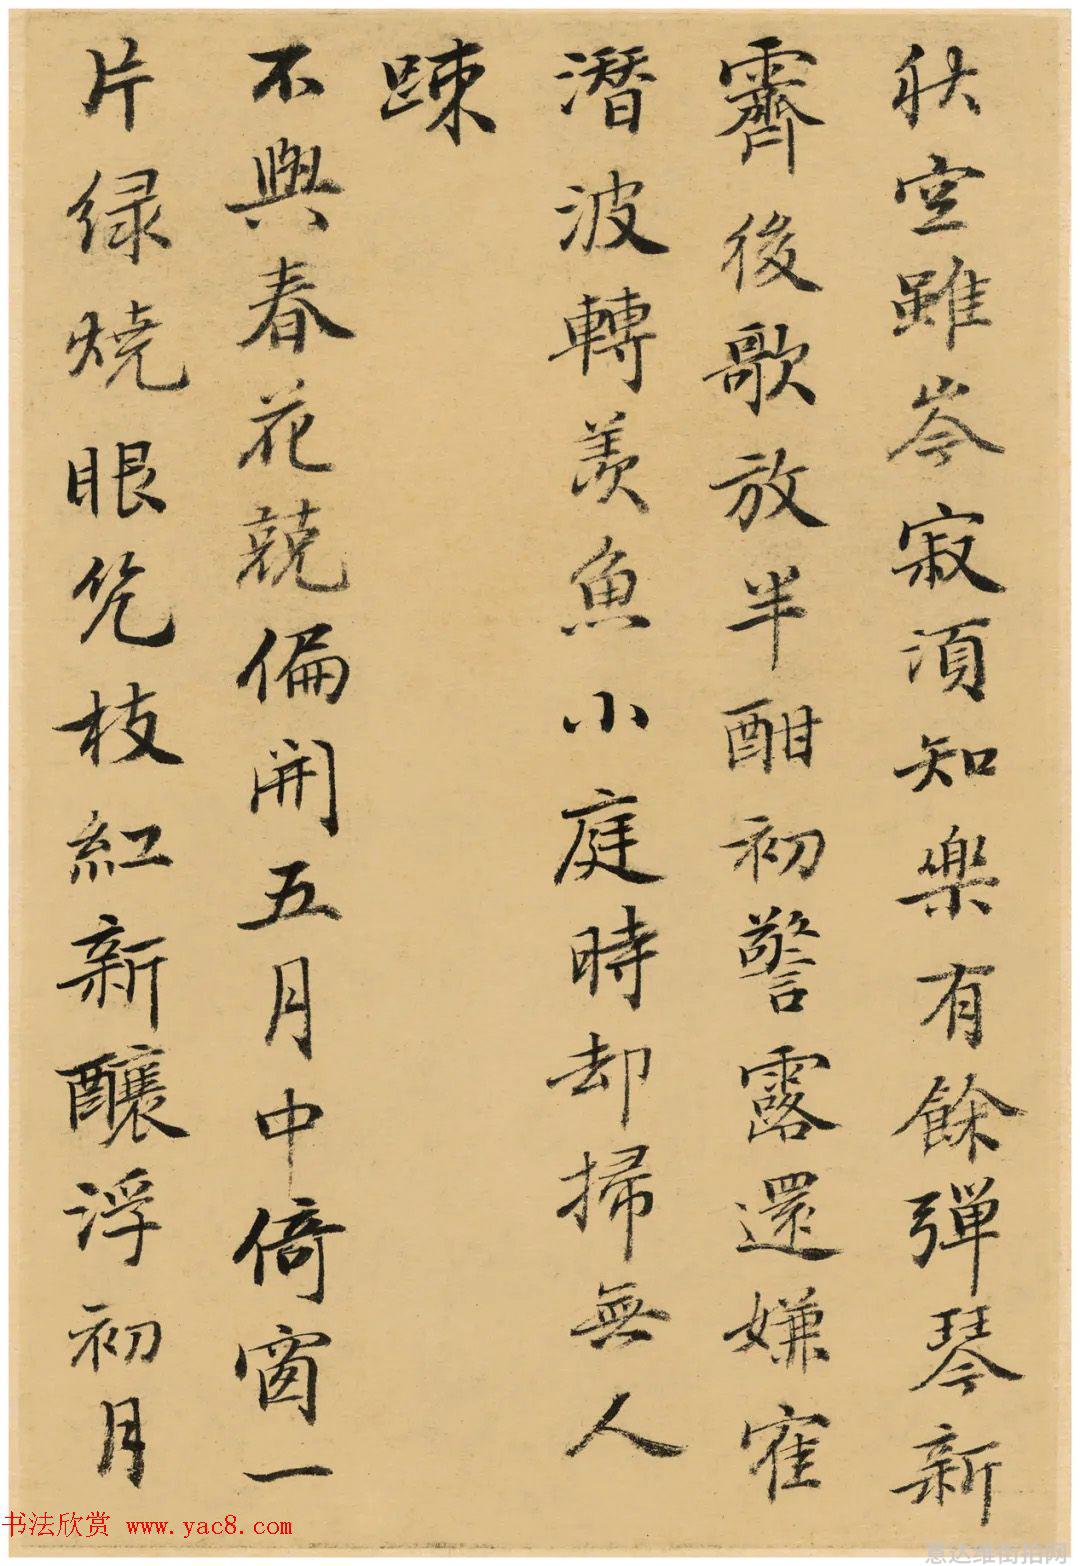 秋空雖岑寂湏知樂有餘彈琴新
霽後歌放半酣初警露還嫌寉
潛波轉羨魚小庭時却掃無人
踈
不與春花競偏開五月中倚窗一
片緑燒眼凭枝紅新釀浮初月
书法欣赏 www.yac8.com